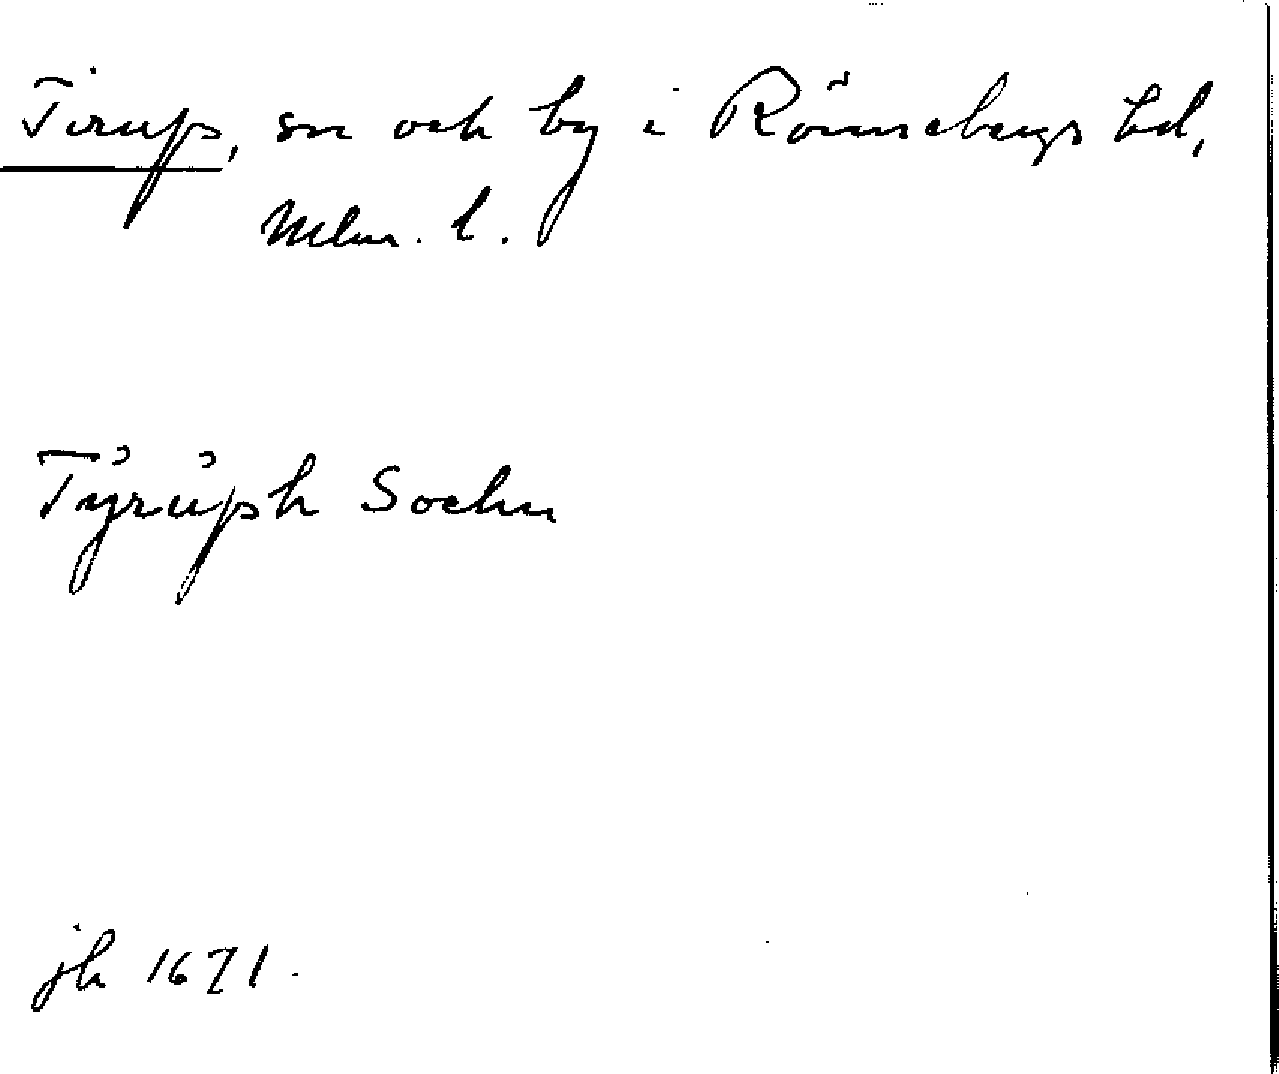 Tirup, sn och by i Rönnebergs hd,
Mlm. l.
Tÿrŭph Sochn
jb 1671.